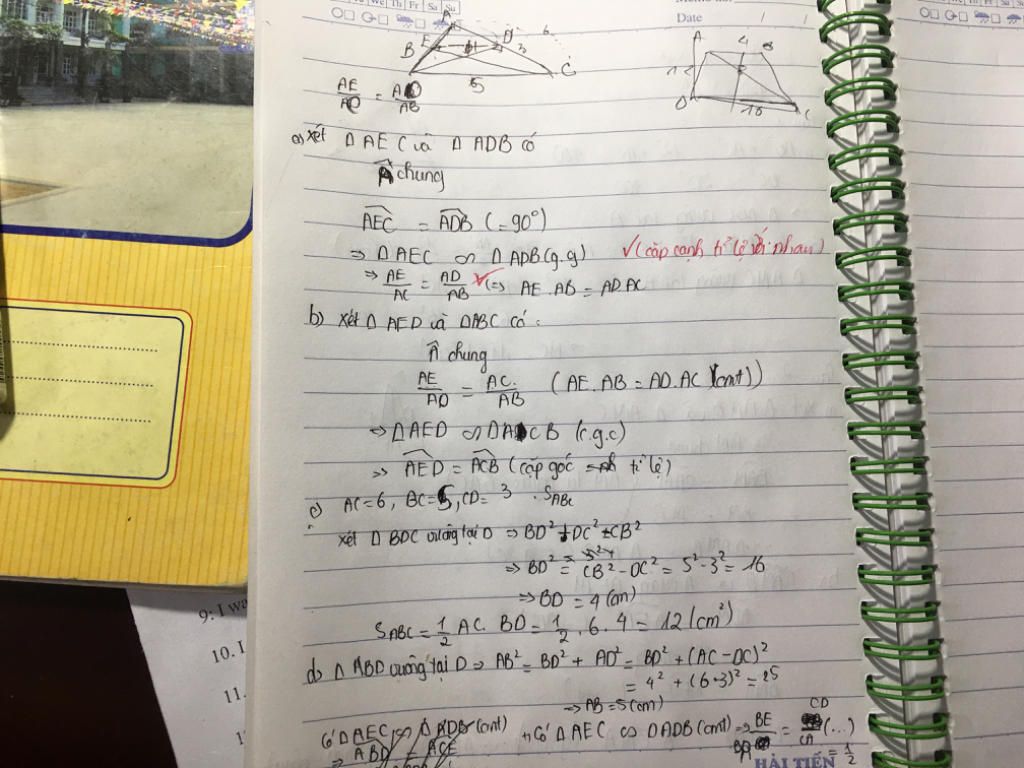 We Th Fr Sa Su
Date / /
A
B E H D 3 6
5 C
A 4 B
D 18 C
AE/AC = AD/AB
a) xét Δ AEC và Δ ADB có
Â chung
AEC = ADB (=90°)
⇒ Δ AEC ∽ Δ ADB (g.g) ✓(cặp cạnh tỉ lệ với nhau)
⇒ AE/AC = AD/AB ✓ (=) AE.AB = AD.AC
b) xét Δ AED và ΔABC có:
Â chung
AE/AD = AC/AB (AE.AB = AD.AC (cmt))
⇒ ΔAED ∽ ΔACB (c.g.c)
⇒ AED = ACB (cặp góc tỉ lệ)
c) AC=6, BC=5, CD= 3 . SABC
xét Δ BDC vuông tại D ⇒ BD² + DC² = CB²
⇒ BD² = CB² - DC² = 5² - 3² = 16
⇒ BD = 4 (cm)
SABC = 1/2 AC. BD = 1/2 . 6 . 4 = 12 (cm²)
d) Δ ABD vuông tại D ⇒ AB² = BD² + AD² = BD² + (AC - DC)²
= 4² + (6-3)² = 25
⇒ AB = 5 (cm)
Có Δ AEC ∽ Δ ADB (cmt) Có Δ AEC ∽ Δ ADB (cmt) ⇒ BE/BA = CD/CA (...)
= 1/2
⇒ ABD ACE
HẢI TIẾN
9: I wa
10. I
11.
1